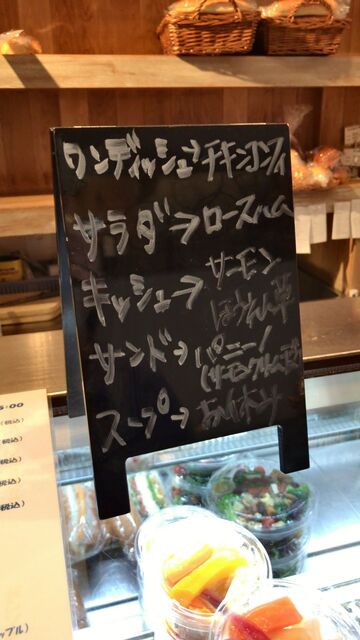 ワンディッシュ→チキンコンフィ
サラダ→ロースハム
キッシュ→サーモン
ほうれん草
サンド→パニーノ
スープ→
5:00
(税込)
(税込)
(税込)
(税込)
ップル)